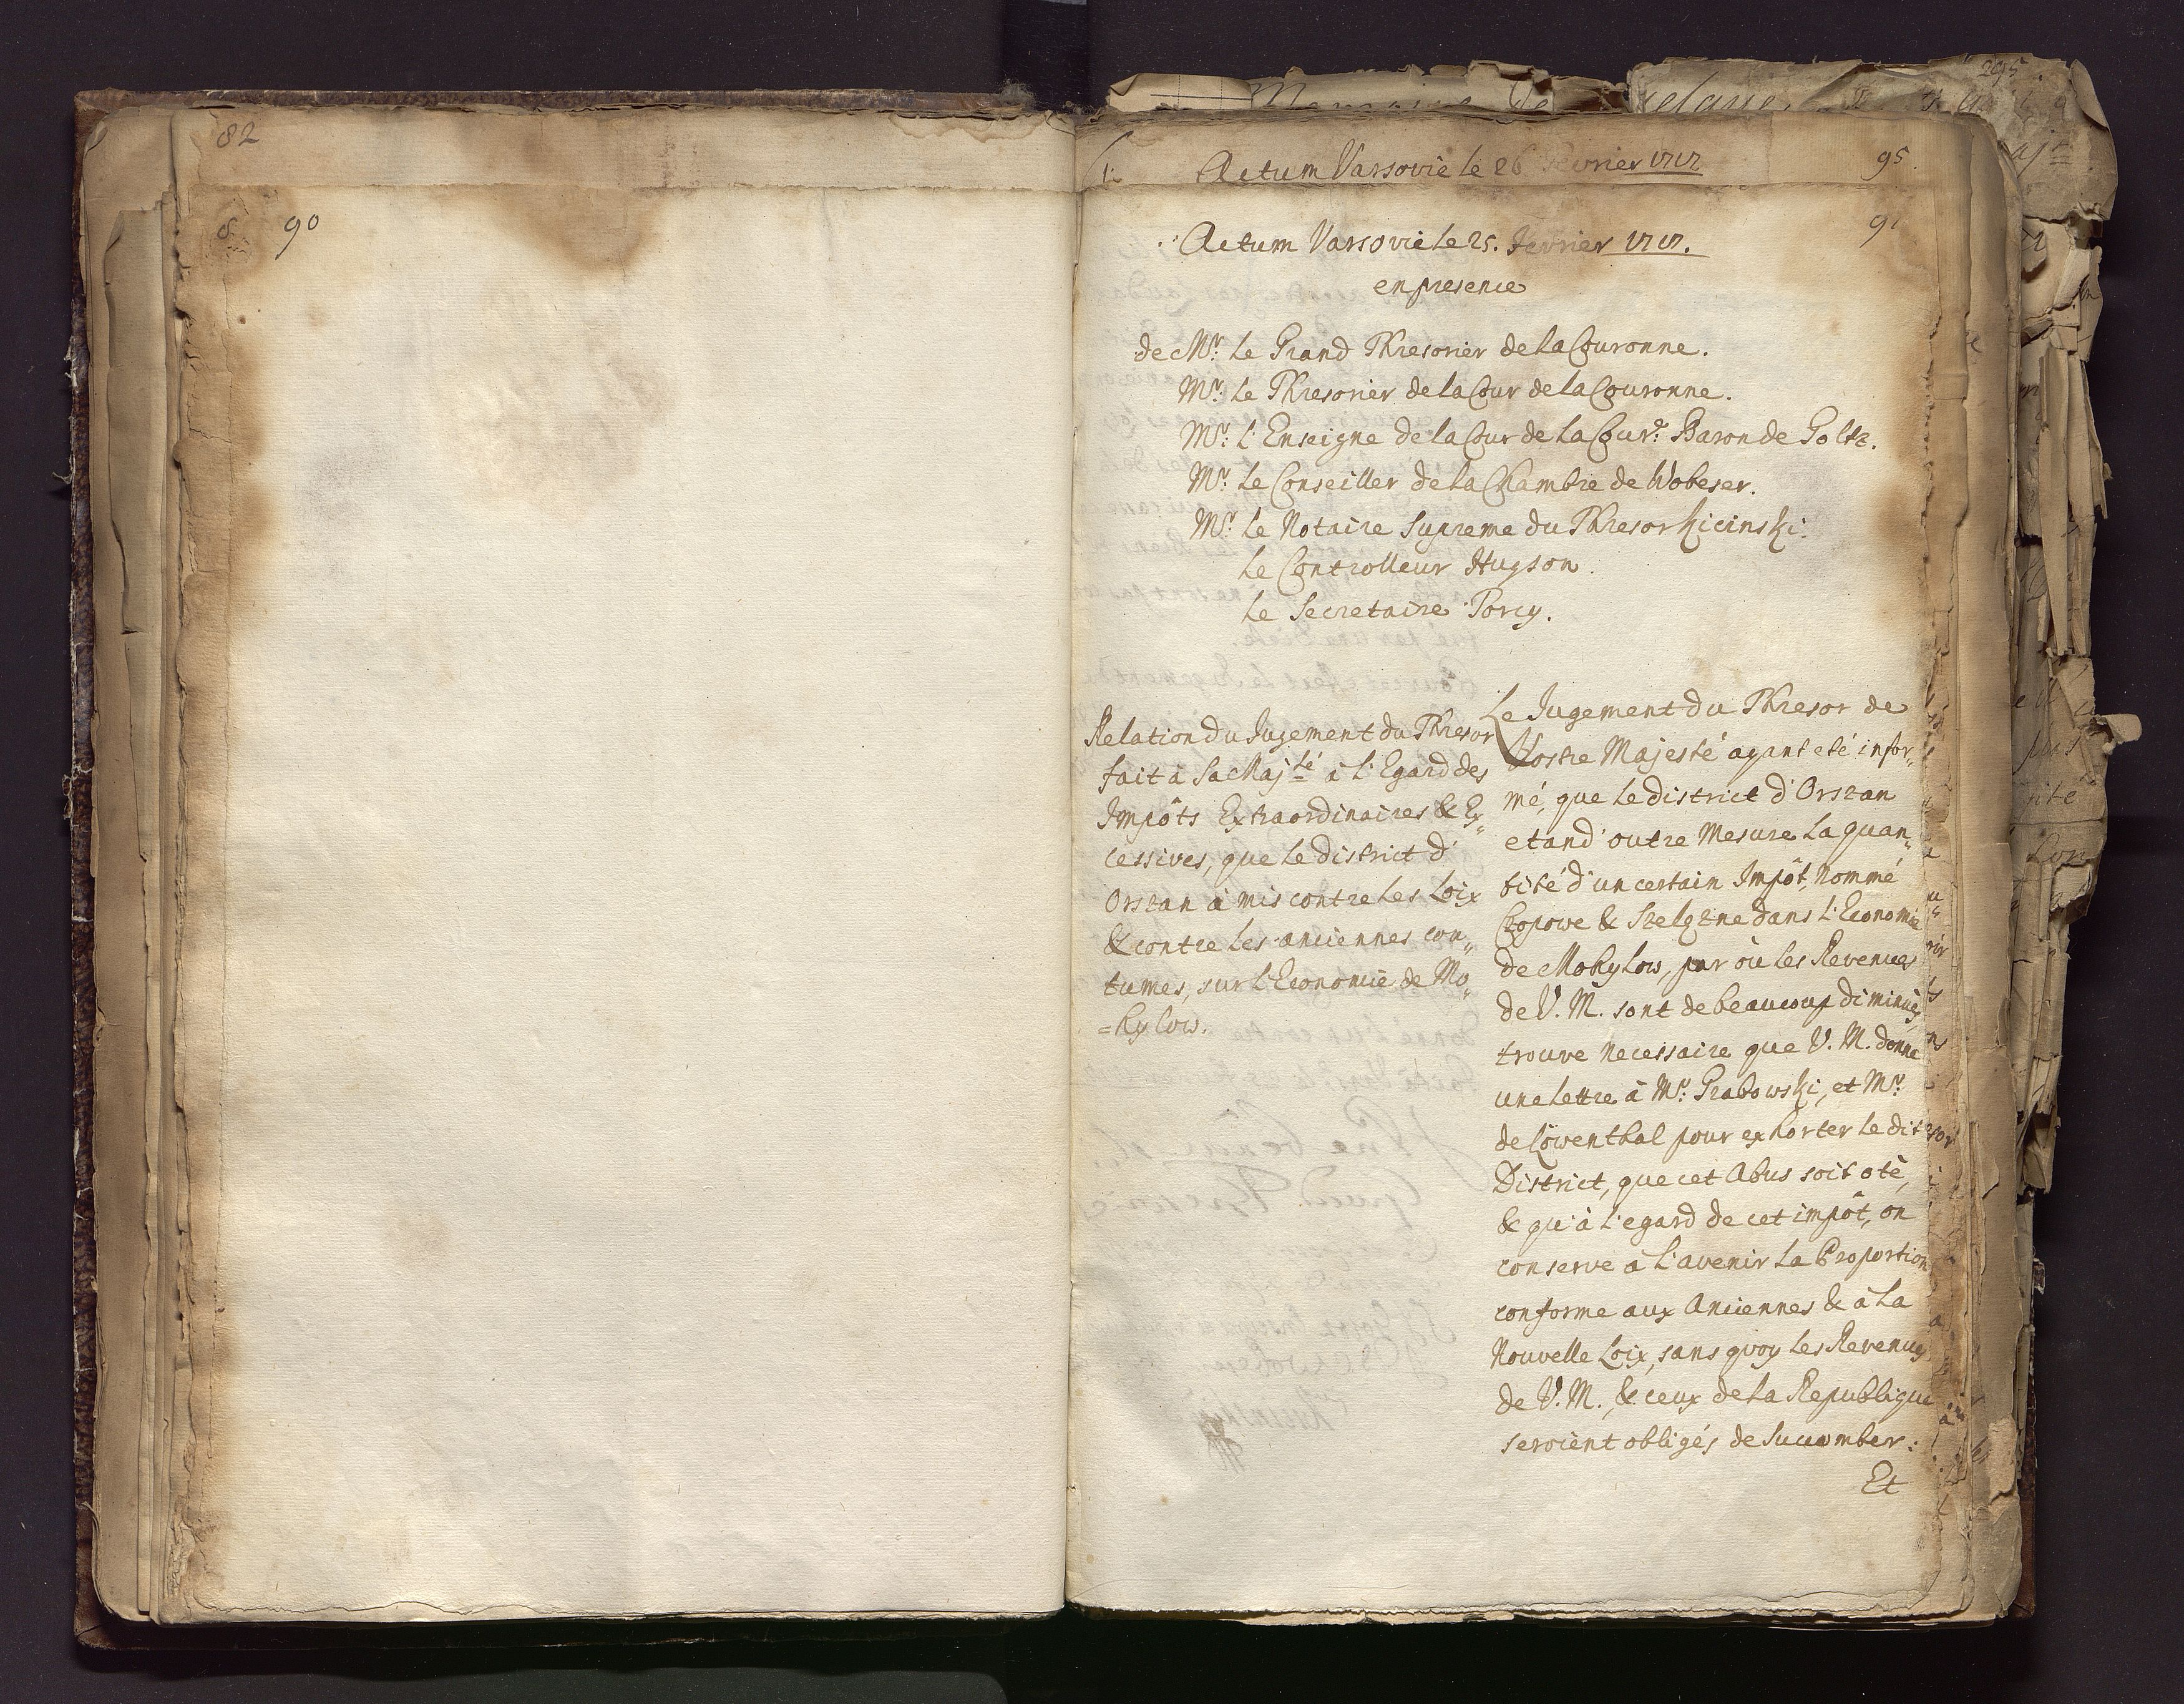 82
90
Actum Varsovie le 26 Fevrier 1717.
95.
91
Actum Varsovie le 25. Fevrier 1717.
en presence
de Mr: le Grand Thresorier de la Couronne.
Mr: le Thresorier de la Cour de la Couronne.
Mr: l'Enseigne de la Cour de la Cour: Baron de Goltz.
Mr: le Conseiller de la Chambre de Wobeser.
Mr: le Notaire Supreme du Thresor Kicinski.
Le Controlleur Hugson.
Le Secretaire Porcy.
Relation du Jugement du Thresor
fait à Sa Majté à l'Egard des
Impôts Extraordinaires & Ex„
cessives, que le district d'
Orszan à mis contre les Loix
& contre les anciennes cou„
tumes, sur l'Economie de Mo„
=hylow.
Le Jugement du Thresor de
Vostre Majesté ayant eté infor„
mé, que le district d'Orszan
etand outre Mesure la quan„
tité d'un certain Impôt, nommé
Czopowe & Szelęzne dans l'Economie
de Mohylow, par où les Revenues
de V. M. sont de beaucoup diminués
trouve necessaire que V. M. donne
une lettre à Mr: Grabowski, et Mr:
de Löwenthal pour exhorter le dit
District, que cet Abus soit oté,
& qu'à l'egard de cet impôt, on
conserve à l'avenir la Proportion
conforme aux Anciennes & à la
Nouvelle Loix, sans quoy les Revenus
de V. M., & ceux de la Republique
seroient obligés de Sucomber:
Et